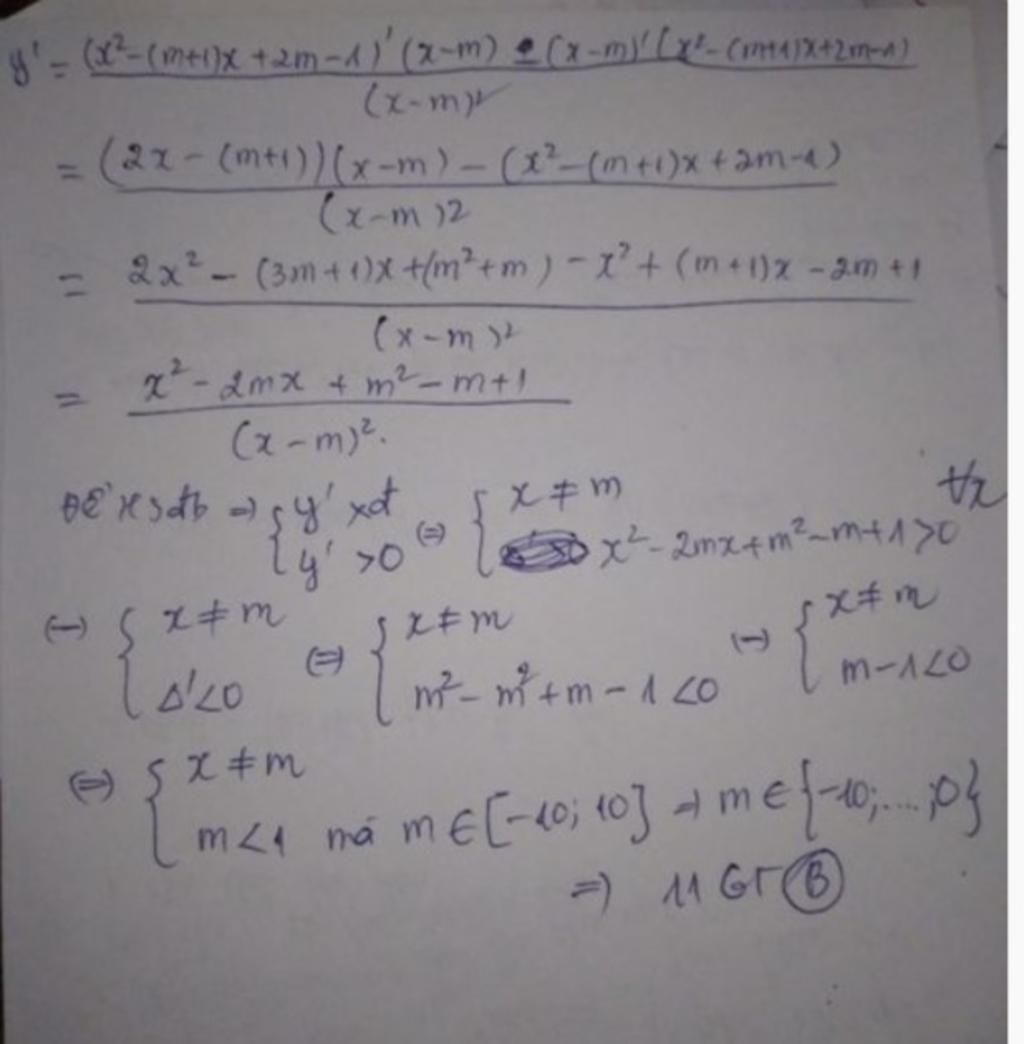 y' = (x²-(m+1)x+2m-1)'(x-m) - (x-m)'(x²-(m+1)x+2m-1)
(x-m)²
= (2x-(m+1))(x-m) - (x²-(m+1)x+2m-1)
(x-m)2
= 2x² - (3m+1)x+(m²+m) - x²+(m+1)x-2m+1
(x-m)²
= x²-2mx+m²-m+1
(x-m)².
Để HSđb ⇒ { y' xđ ⇔ { x ≠ m ∀x
y' >0 x²-2mx+m²-m+1>0
(−) { x ≠ m ⇔ { x ≠ m (−) { x ≠ m
Δ'<0 m²-m²+m-1<0 m-1<0
⇔ { x ≠ m
m<1 mà m∈[-10;10] ⇒ m∈{-10;...;0}
⇒ 11 GT B